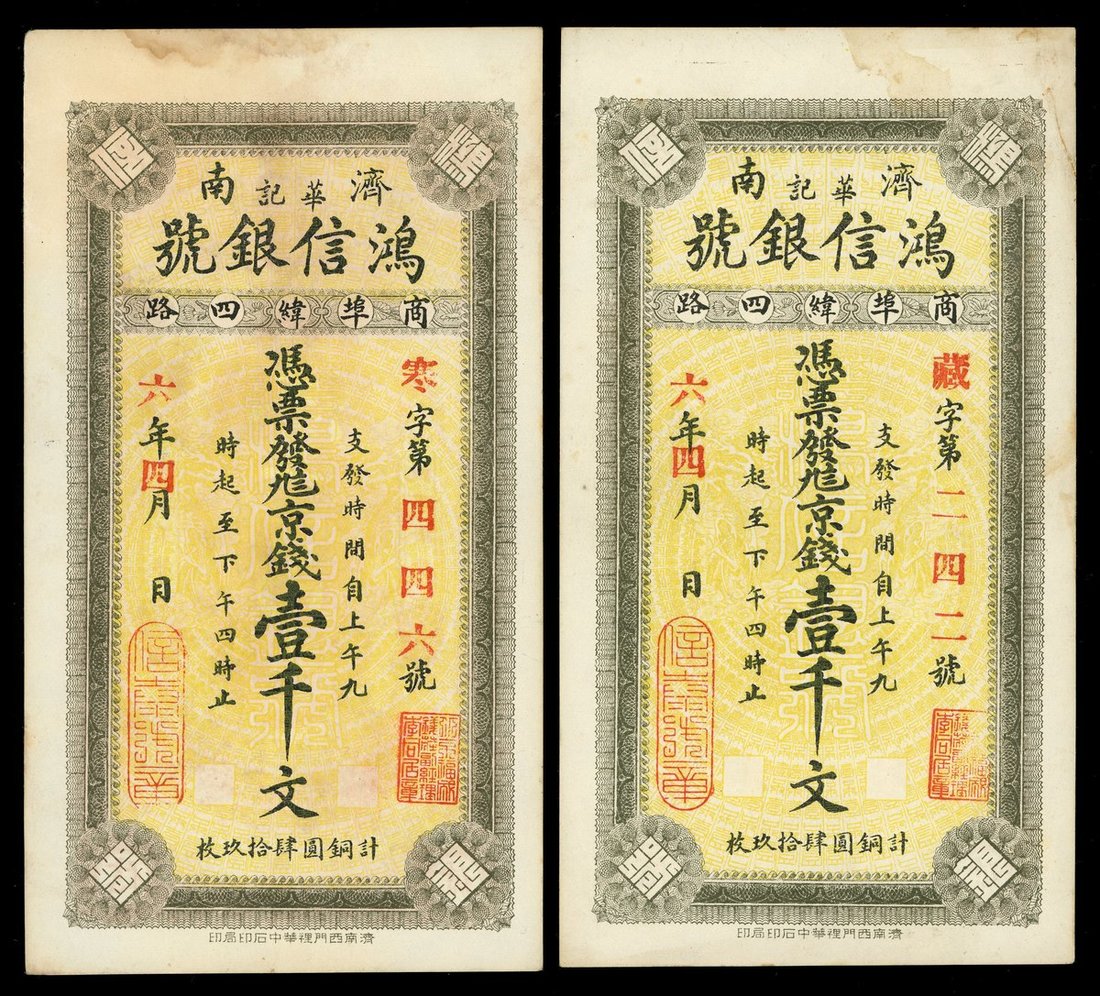 濟華記南
鴻信銀號
商埠緯四路
寒字第四四六號
支發時間自上午九
憑票發兌京錢壹千文
時起至下午四時止
六年四月日
計銅圓肆拾玖枚
濟南西門裡華中石印局印
濟華記南
鴻信銀號
商埠緯四路
藏字第二四二號
支發時間自上午九
憑票發兌京錢壹千文
時起至下午四時止
六年四月日
計銅圓肆拾玖枚
濟南西門裡華中石印局印